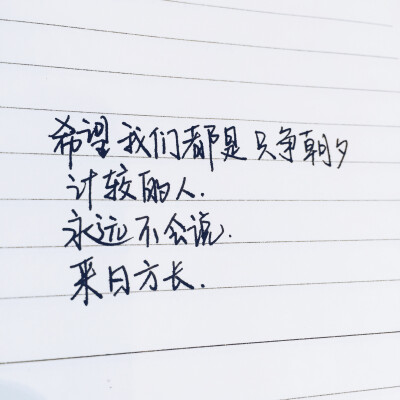 希望我们都是只争朝夕
计较的人.
永远不会说.
来日方长.